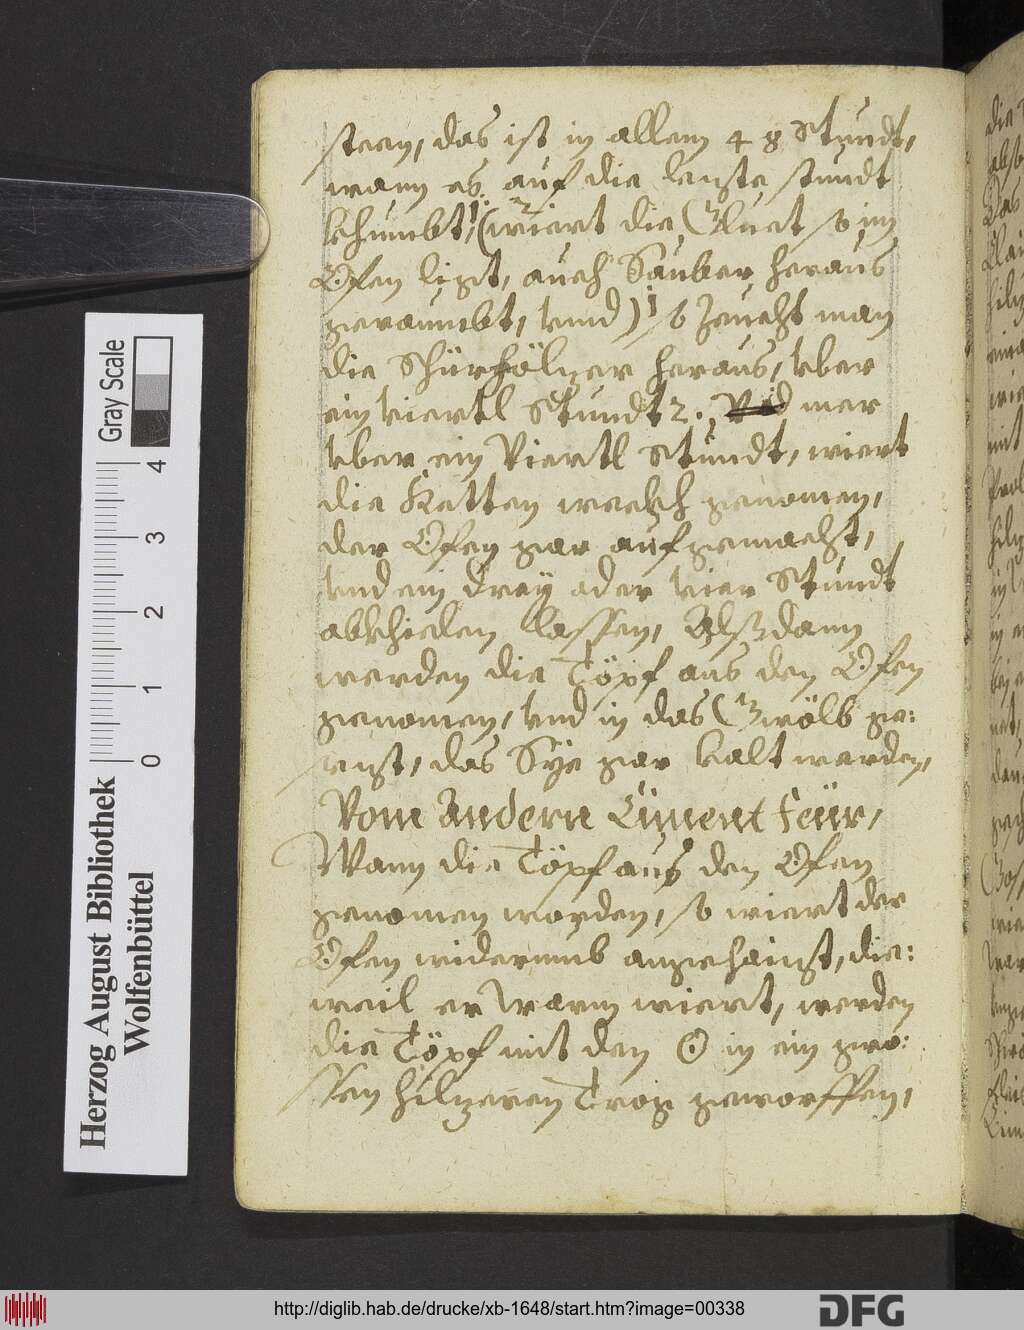 steen, das ist in allem 48 Stundt,
wann es auf die lengste stundt
khumbt, (wiert die Gluet so im
Ofen ligt, auch Sauber heraus
geraumbt, vnnd) so Zeucht man
die Schürhölzer heraus, vber
ein viertl Stundt 2. mer
vber ein Viertl Stundt, wiert
die Katten wekh genomen,
der Ofen gar aufgemacht,
vnd ein drey oder vier Stundt
abkhielen lassen, Alßdann
werden die Töpf aus den Ofen
genomen, vnd in das Gwölb ge:
sezt, das Sye gar kalt werden,
Vom Andern Ciment feür,
Wann die Töpf aus den Ofen
genomen worden, so wiert der
Ofen widerumb angehaizt, die:
weil er warm wiert, werden
die Töpf mit den ☉ in ein gro:
ssen hilzenen Trog geworffen,
Herzog August Bibliothek
Wolfenbüttel
Gray Scale
0 1 2 3 4
http://diglib.hab.de/drucke/xb-1648/start.htm?image=00338
DFG